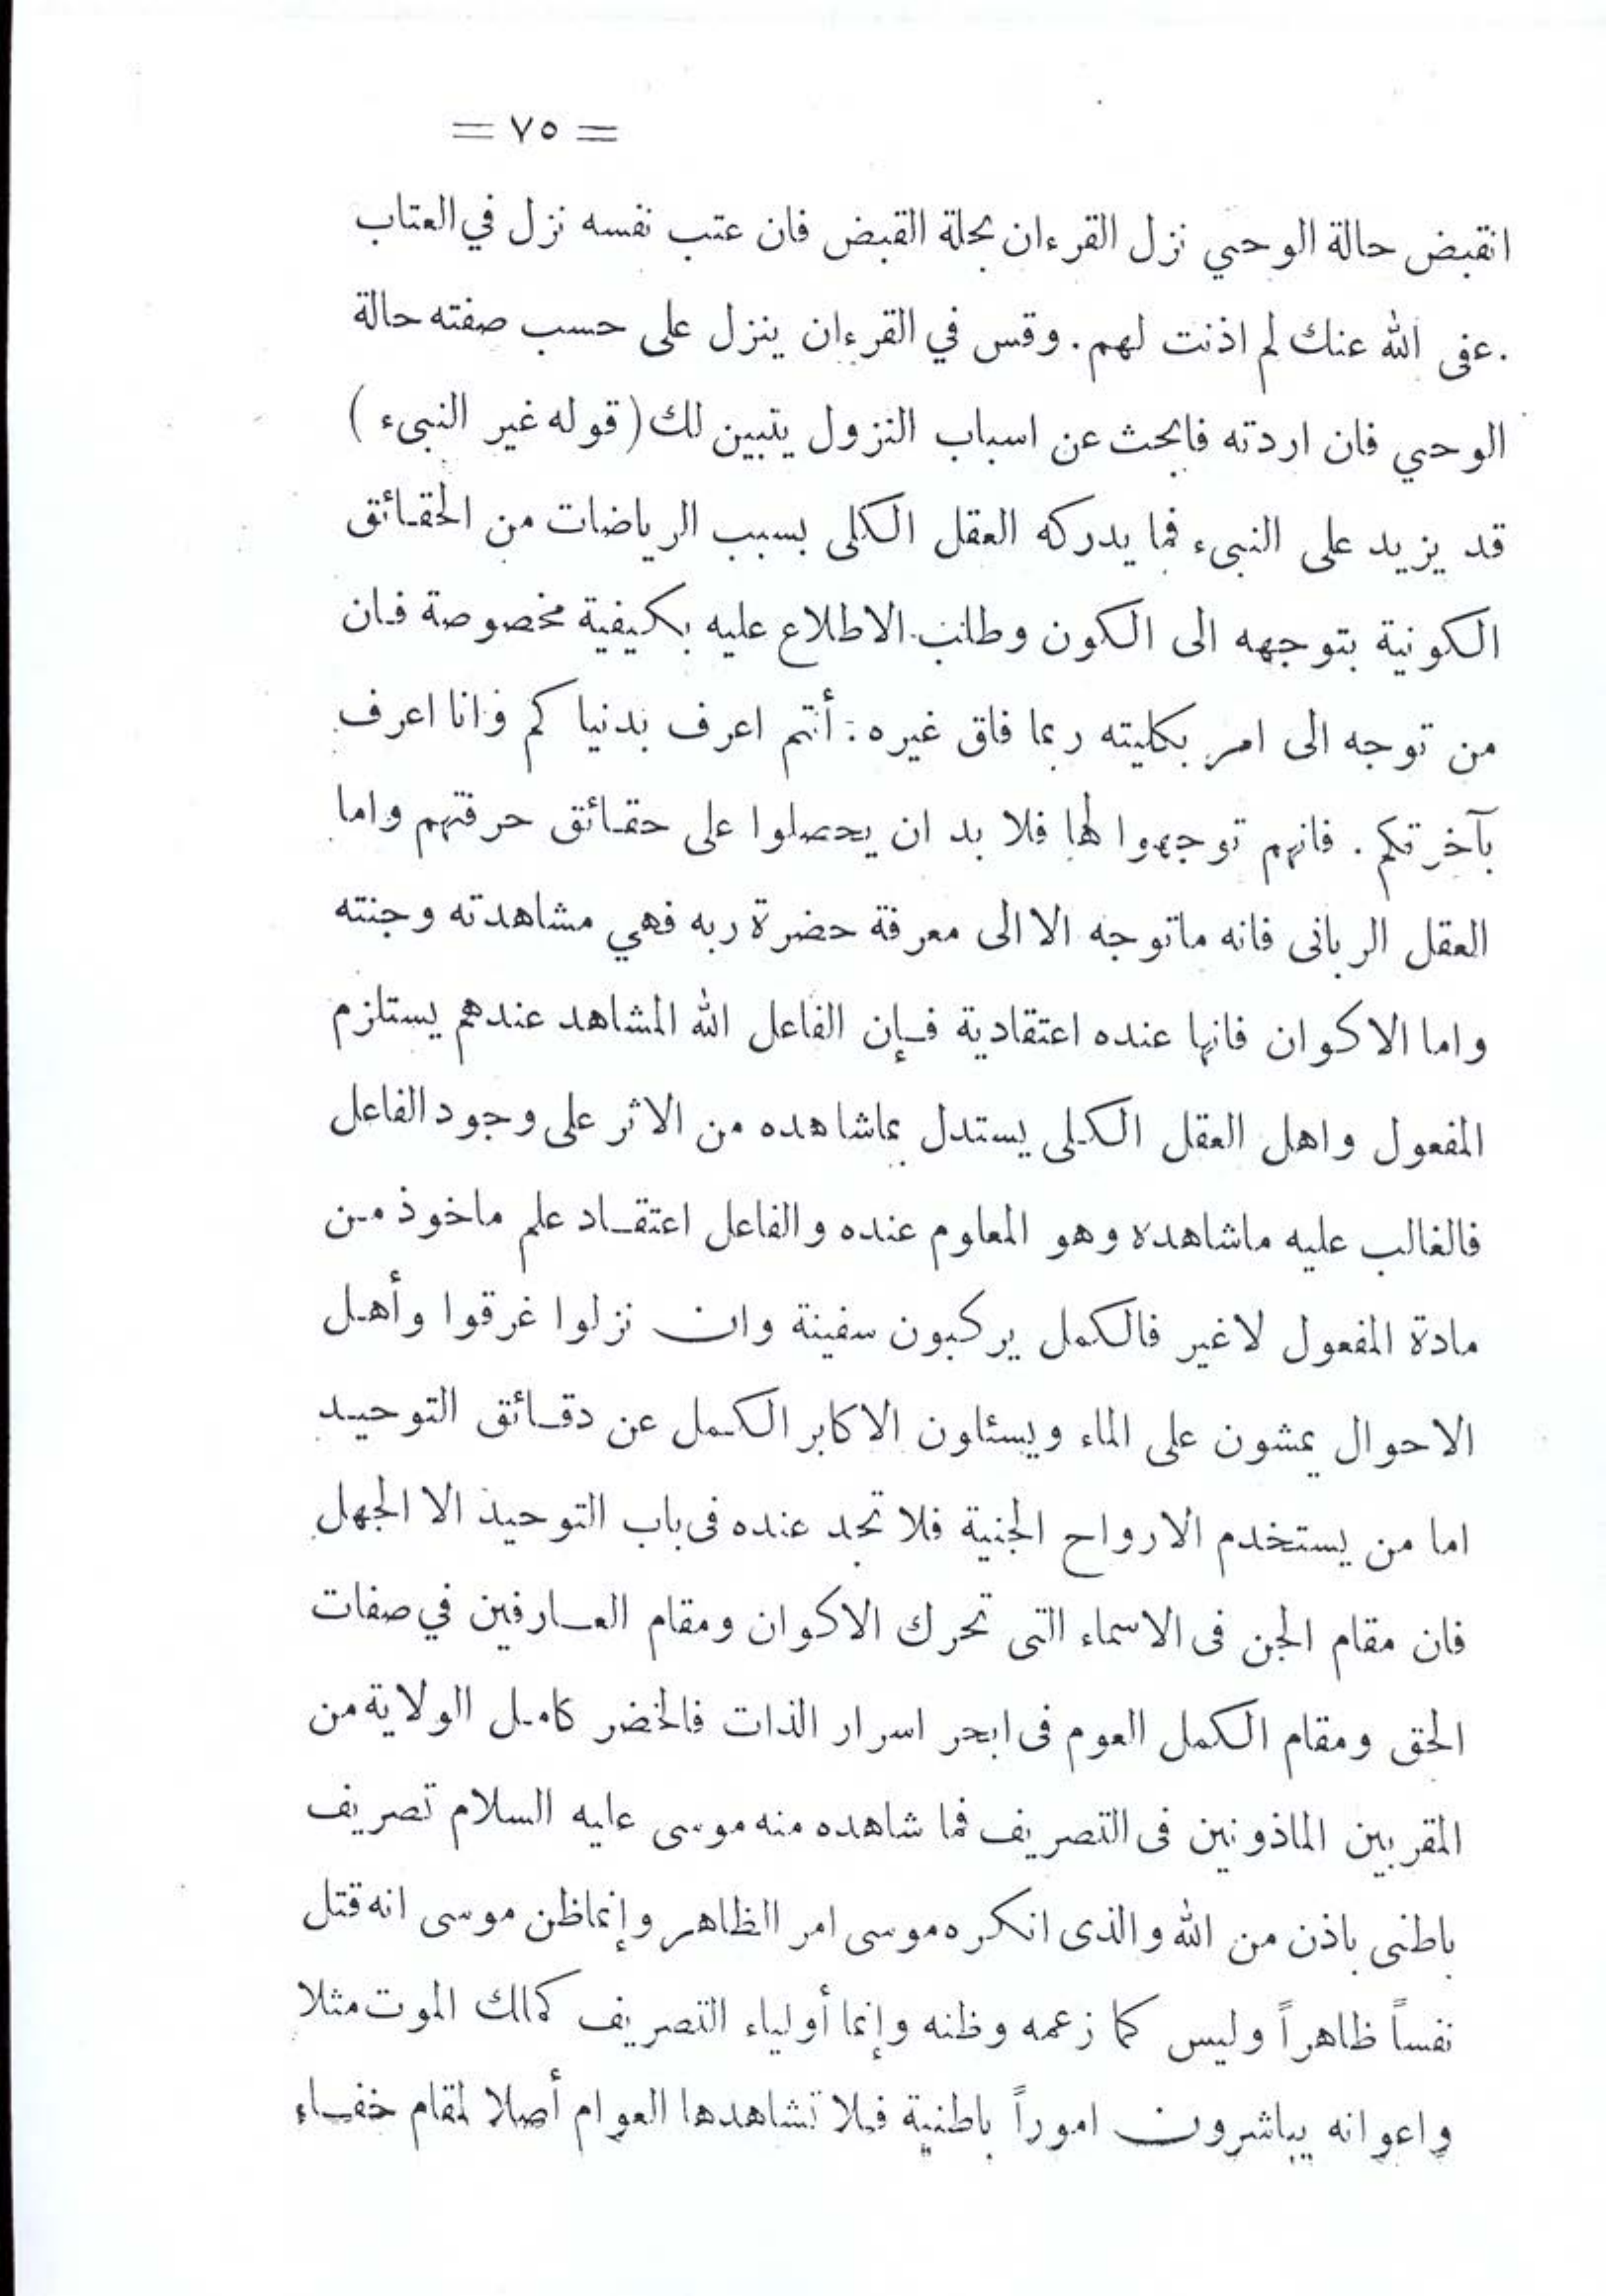 = ٧٥ =
انقبض حالة الوحي نزل القرءان بحلة القبض فان عتب نفسه نزل في العتاب
.عفى الله عنك لم اذنت لهم. وقس في القرءان ينزل على حسب صفته حالة
الوحي فان اردته فابحث عن اسباب النزول يتبين لك (قوله غير النبىء)
قد يزيد على النبىء فما يدركه العقل الكلى بسبب الرياضات من الحقائق
الكونية بتوجهه الى الكون وطلب الاطلاع عليه بكيفية مخصوصة فان
من توجه الى امر بكليته ربما فاق غيره: أنتم اعرف بدنياكم وانا اعرف
بآخرتكم. فانهم توجهوا لها فلا بد ان يحصلوا على حقائق حرفتهم واما
العقل الربانى فانه ماتوجه الا الى معرفة حضرة ربه فهي مشاهدته وجنته
واما الاكوان فانها عنده اعتقادية فإن الفاعل الله المشاهد عندهم يستلزم
المفعول واهل العقل الكلى يستدل بماشاهده من الاثر على وجود الفاعل
فالغالب عليه ماشاهده وهو المعلوم عنده والفاعل اعتقاد علم ماخوذ من
مادة المفعول لاغير فالكمل يركبون سفينة وان نزلوا غرقوا وأهل
الاحوال يمشون على الماء ويسئلون الاكابر الكمل عن دقائق التوحيد
اما من يستخدم الارواح الجنية فلا تجد عنده فى باب التوحيد الا الجهل
فان مقام الجن فى الاسماء التى تحرك الاكوان ومقام العارفين في صفات
الحق ومقام الكمل العوم فى ابحر اسرار الذات فالخضر كامل الولاية من
المقربين الماذونين فى التصريف فما شاهده منه موسى عليه السلام تصريف
باطنى باذن من الله والذى انكره موسى امر الظاهر وإنماظن موسى انه قتل
نفساً ظاهراً وليس كما زعمه وظنه وإنما أولياء التصريف كملك الموت مثلا
واعوانه يباشرون اموراً باطنية فلا تشاهدها العوام أصلا لمقام خفاء